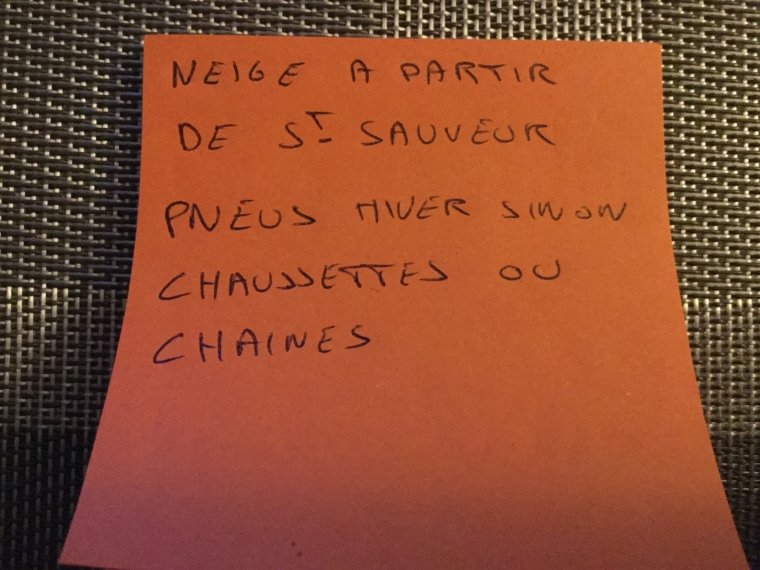 NEIGE A PARTIR
DE ST SAUVEUR
PNEUS HIVER SINON
CHAUSSETTES OU
CHAINES